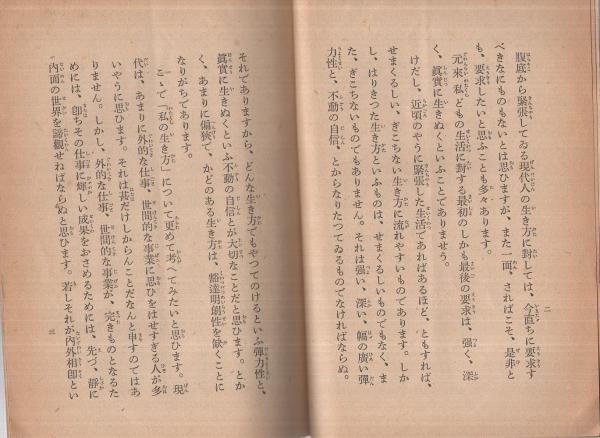 二
腹底から緊張してゐる現代人の生き方に對しては、今直ちに要求す
べきなにものもないとは思ひますが、また一面、さればこそ、是非と
も、要求したいと思ふことも多々あります。
元來私どもの生活に對する最初のしかも最後の要求は、強く、深
く、眞實に生きぬくといふことでありませう。
けだし、近頃のやうに緊張した生活であればあるほど、ともすれば、
せまくるしい、ぎこちない生き方に流れやすいものであります。しか
し、はりきつた生き方といふものは、せまくるしいものでもなく、ま
た、ぎこちないものでもありません。それは強い、深い、幅の廣い彈
力性と、不動の自信、とからなりたつてゐるものでなければならぬ。
それでありますから、どんな生き方でもやつてのけるといふ彈力性と、
眞實に生きぬくといふ不動の自信とが大切なことだと思ひます。とか
く、あまりに偏狹で、かどのある生き方は、豁達明創性を欠くことに
なりがちであります。
こゝで「私の生き方」について更めて考へてみたいと思ひます。現
代は、あまりに外的な仕事、世間的な事業に思ひをはせすぎる人が多
いやうに思ひます。それは甚だけしからんことだなんと申すのではあ
りません。しかし、外的な仕事、世間的な事業が、完きものとなるた
めには、卽ちその仕事に輝しい成果をおさめるためには、先づ、靜に
内面の世界を諦觀せねばならぬと思ひます。若しそれが内外相卽とい
三